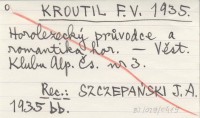 o KROUTIL F.V. 1935.
Horolezecký průvodce a
romantika hor. — Věst.
Klubu Alp. Čs. nr 3.
Rec.: SZCZEPAŃSKI J.A.
1935 bb.